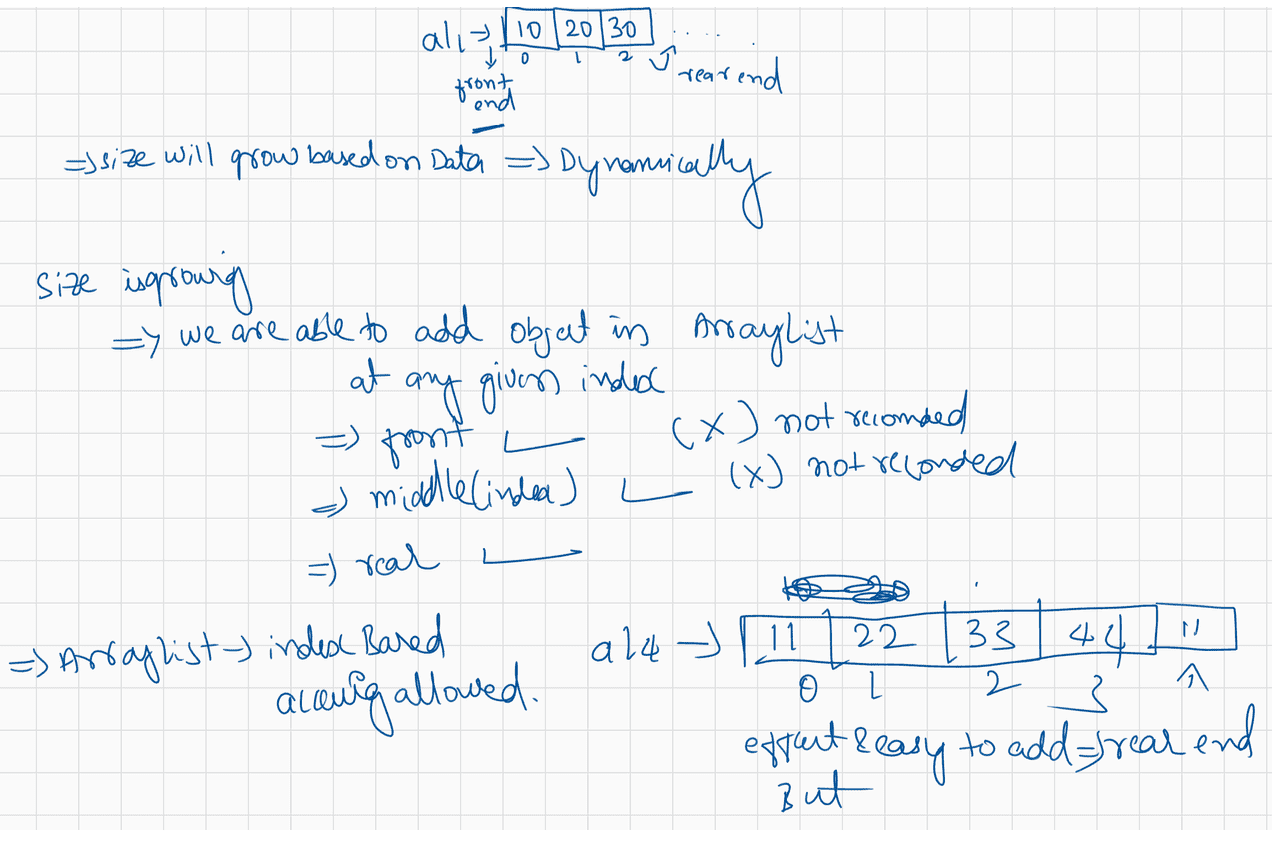 al1 => 10 20 30 .....
0 1 2
front end
rear end
=> size will grow based on Data => Dynamically
Size is growig
=> we are able to add object in ArrayList
at any given index
=> front (x) not recomded
=> middle(index) (x) not reconded
=> rear
=> ArrayList -> index Based
allowed.
al4 -> 11 22 33 44 11
0 1 2 3
& easy to add => rear end
But